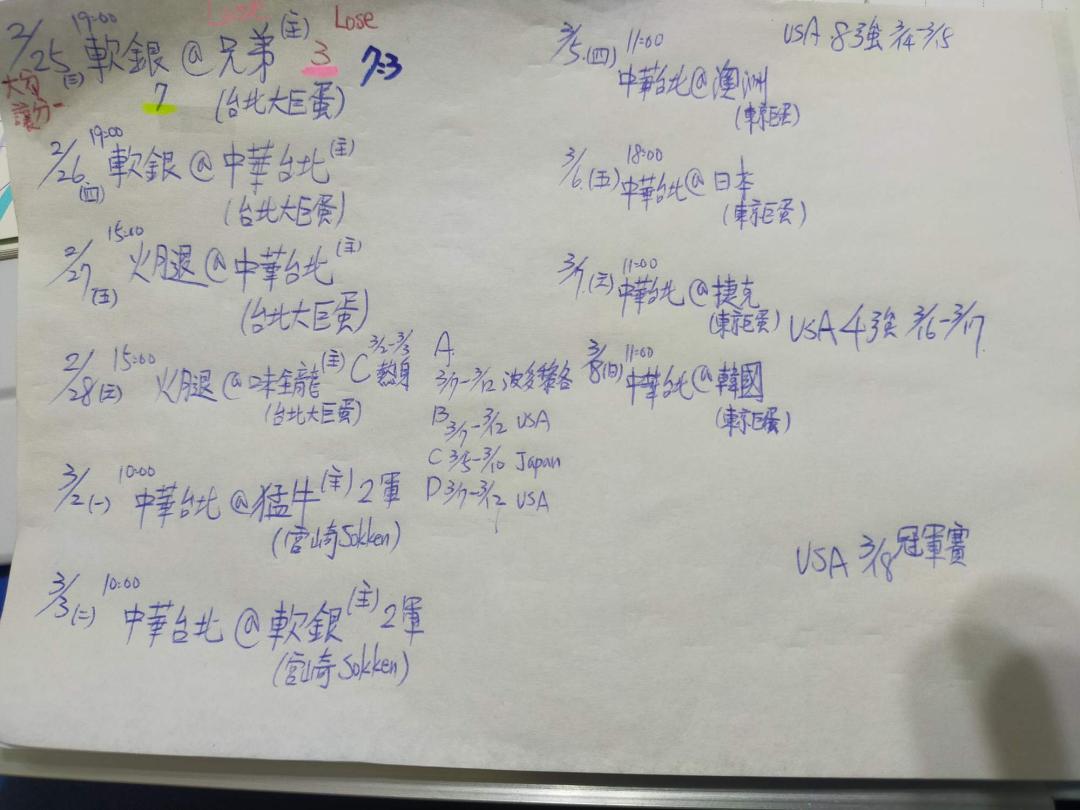 Lose Lose
2/25(三) 19:00 軟銀@兄弟(主) 3 7:3
大分 7 (台北大巨蛋)
讓分
2/26(四) 19:00 軟銀@中華台北(主)
(台北大巨蛋)
2/27(五) 15:00 火腿@中華台北(主)
(台北大巨蛋)
2/28(六) 15:00 火腿@味全龍(主)
(台北大巨蛋)
3/2(一) 10:00 中華台北@猛牛(主)2軍
(宮崎Sokken)
3/3(二) 10:00 中華台北@軟銀(主)2軍
(宮崎Sokken)
C 3/2-3/3 熱身
A
3/7-3/12 波多黎各
B 3/7-3/12 USA
C 3/5-3/10 Japan
D 3/7-3/12 USA
3/5(四) 11:00
中華台北@澳洲
(東京巨蛋)
3/6(五) 18:00
中華台北@日本
(東京巨蛋)
3/7(六) 11:00
中華台北@捷克
(東京巨蛋)
3/8(日) 11:00
中華台北@韓國
(東京巨蛋)
USA 8強 3/4-3/15
USA 4強 3/16-3/17
USA 3/18 冠軍賽